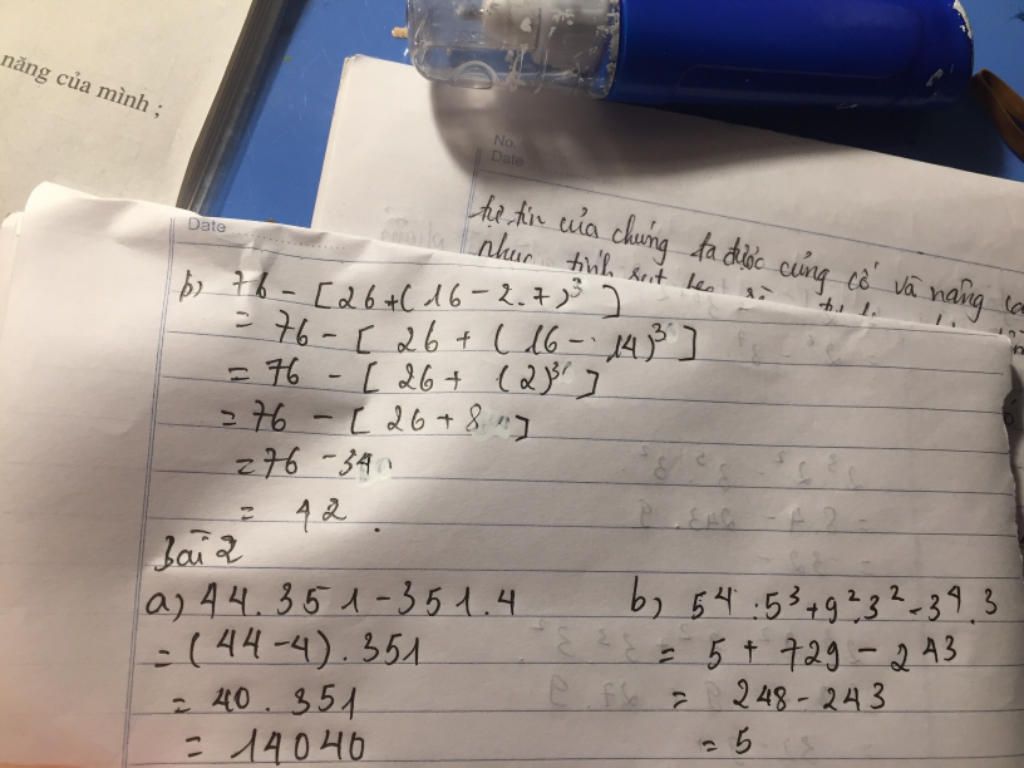 năng của mình ;
No.
Date
tự tin của chúng ta được củng cố và nâng
Date
b, 76 - [26+(16-2.7)³]
= 76 - [ 26 + (16 - 14)³ ]
= 76 - [ 26 + (2)³ ]
= 76 - [ 26 + 8 ]
= 76 - 34
= 42.
Bài 2
a) 44.351-351.4
= (44-4).351
= 40.351
= 14040
b) 5⁴:5³+9².3²-3⁴.3
= 5 + 729 - 243
= 248 - 243
= 5